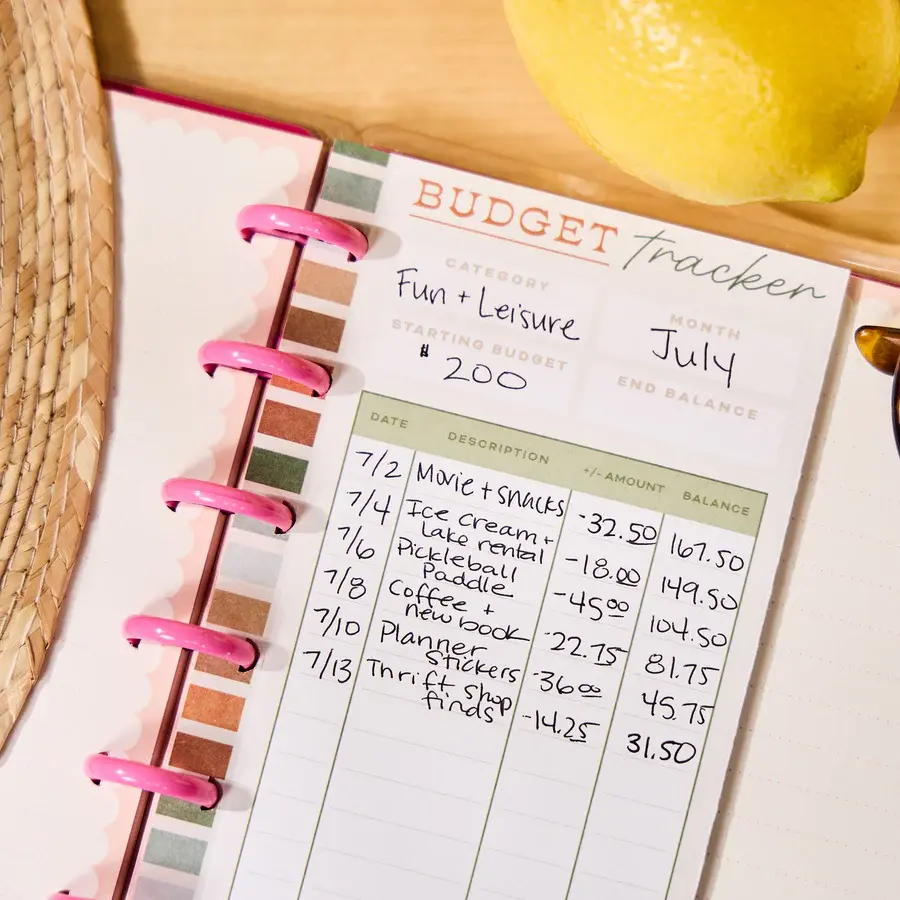 BUDGET tracker
CATEGORY
Fun + Leisure
MONTH
July
STARTING BUDGET
$ 200
END BALANCE
DATE DESCRIPTION +/- AMOUNT BALANCE
7/2 Movie + snacks -32.50 167.50
7/4 Ice cream + -18.00 149.50
lake rental
7/6 Pickleball -45.00 104.50
Paddle
7/8 Coffee + -22.75 81.75
new book
7/10 Planner -36.00 45.75
Stickers
7/13 Thrift shop -14.25 31.50
finds